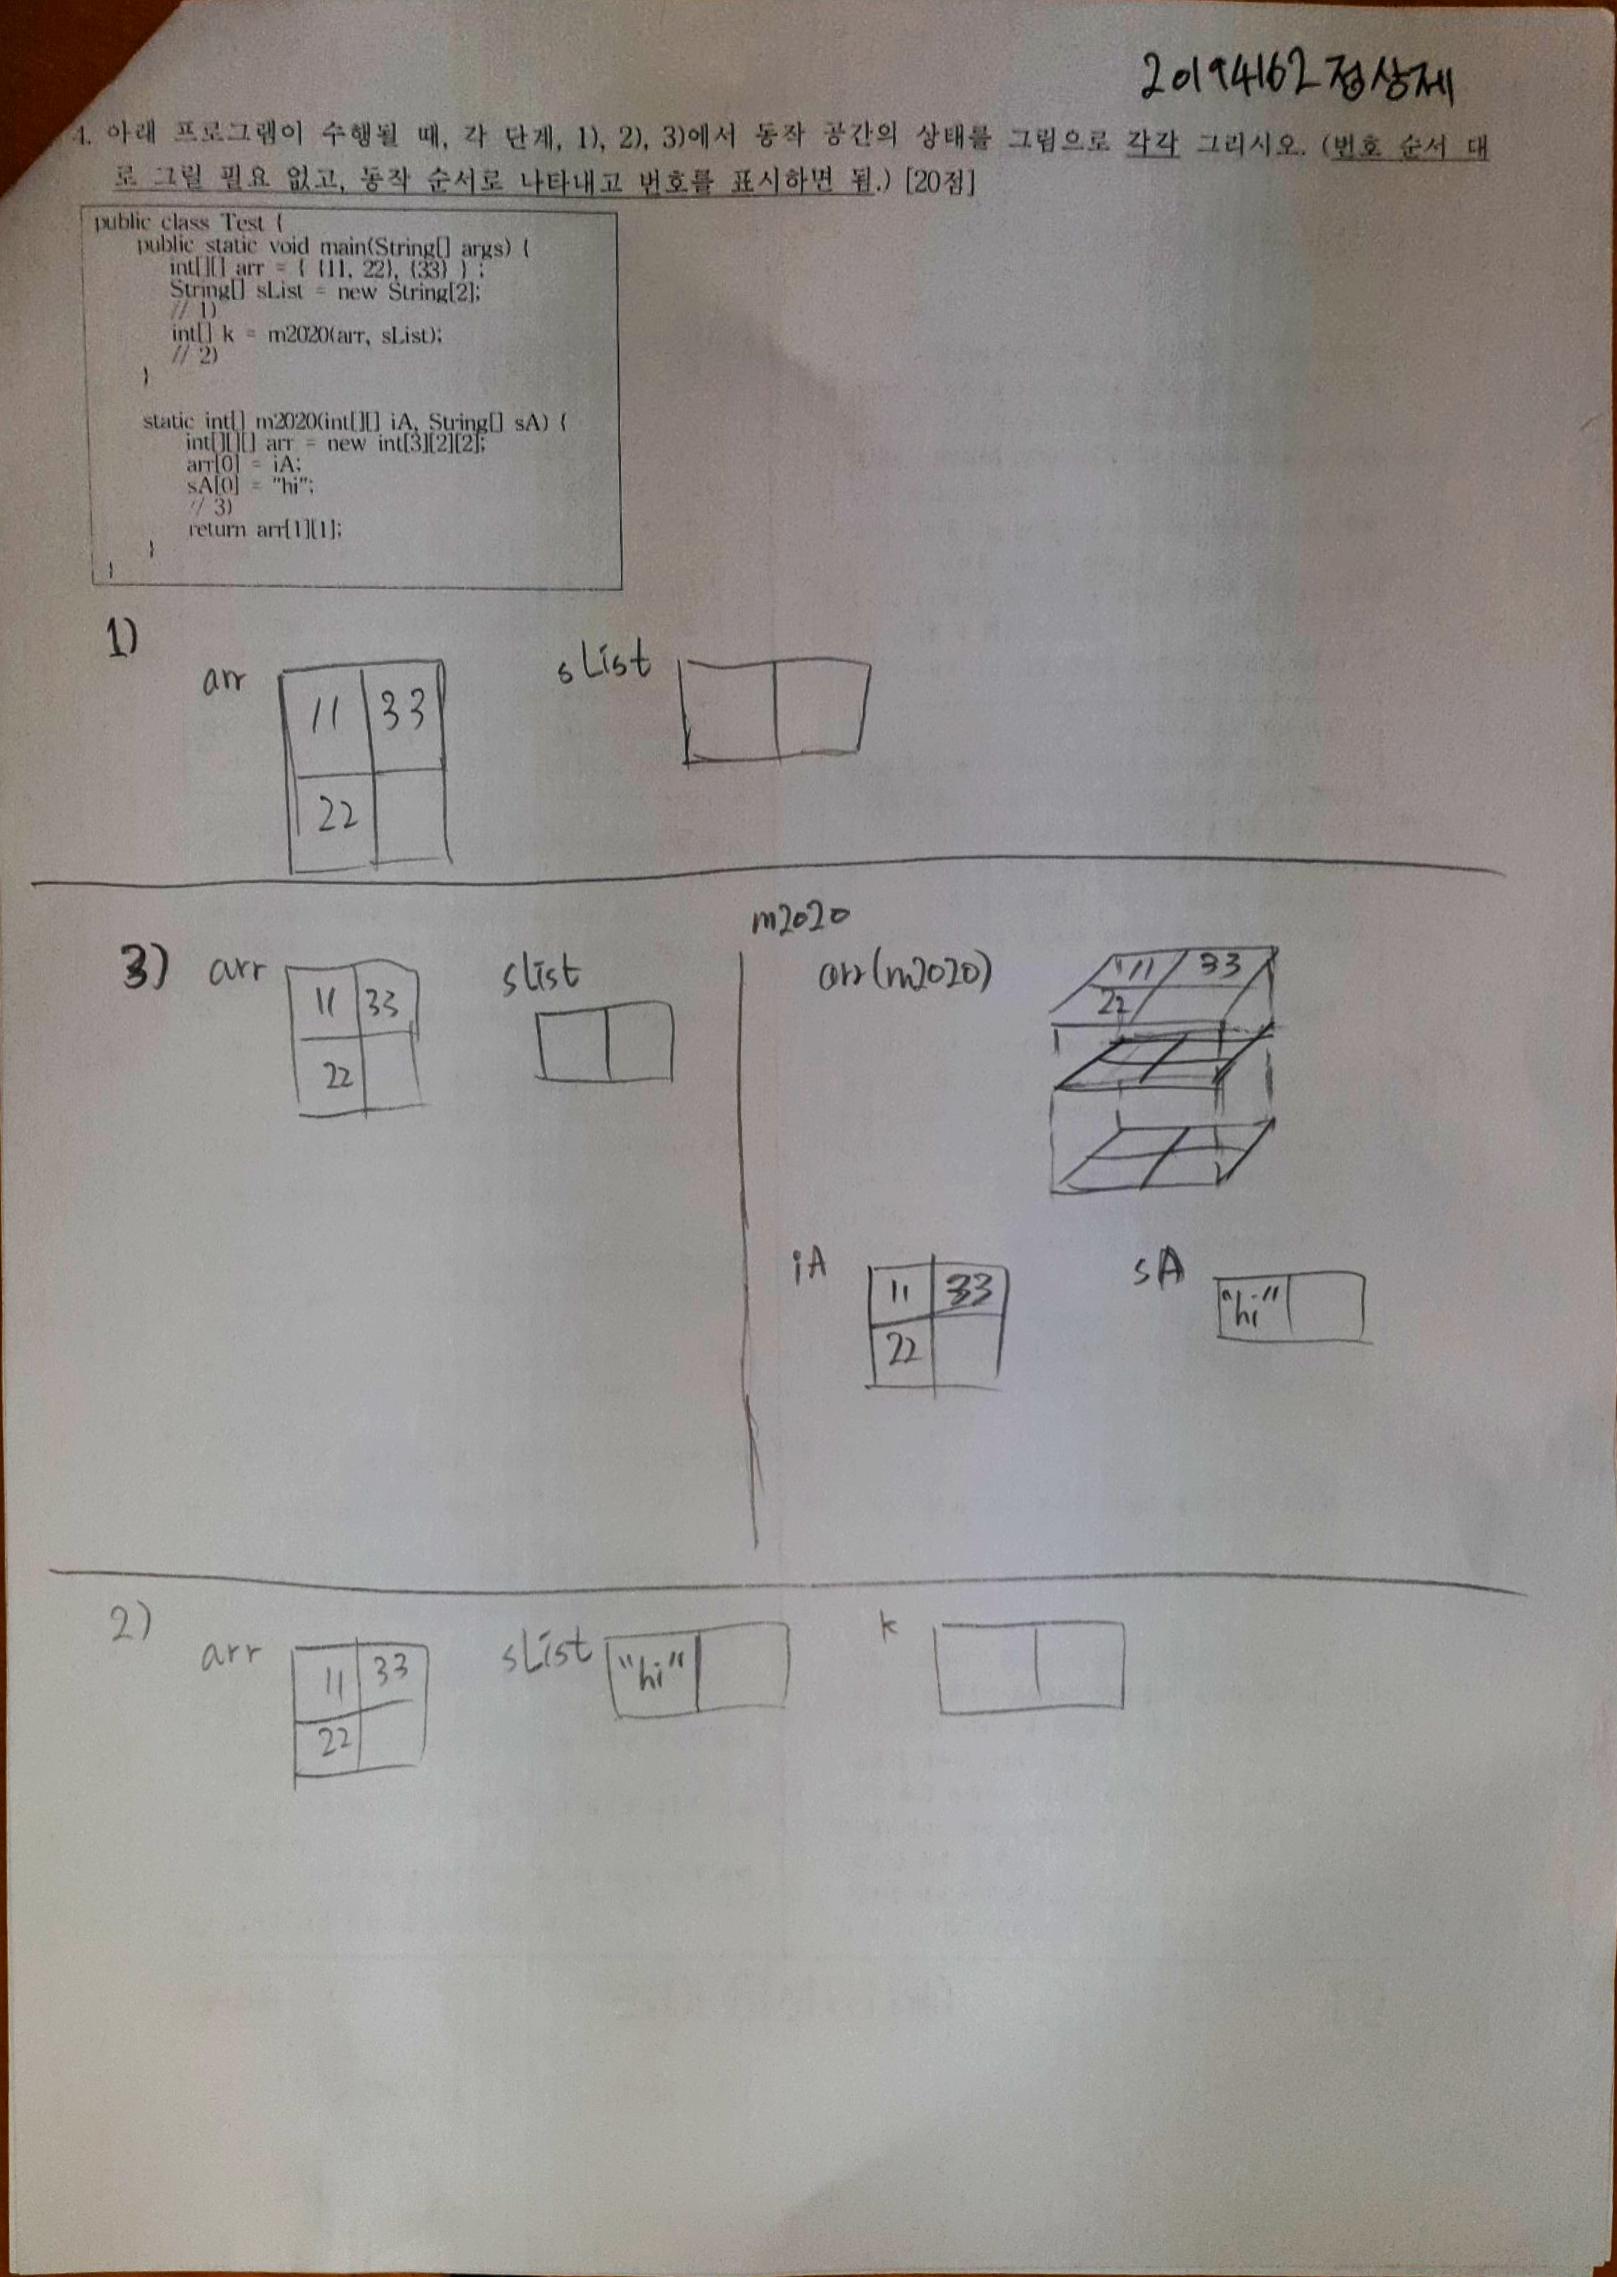 20194162 정상제
4. 아래 프로그램이 수행될 때, 각 단계, 1), 2), 3)에서 동작 공간의 상태를 그림으로 각각 그리시오. (번호 순서 대
로 그릴 필요 없고, 동작 순서로 나타내고 번호를 표시하면 됨.) [20점]
public class Test {
public static void main(String[] args) {
int[][] arr = { {11, 22}, {33} } ;
String[] sList = new String[2];
// 1)
int[] k = m2020(arr, sList);
// 2)
}
static int[] m2020(int[][] iA, String[] sA) {
int[][][] arr = new int[3][2][2];
arr[0] = iA;
sA[0] = "hi";
// 3)
return arr[1][1];
}
}
1)
arr 11 33 sList
22
m2020
3) arr 11 33 sList arr(m2020) 11 33
22 22
iA 11 33 sA "hi"
22
2) arr 11 33 sList "hi" k
22